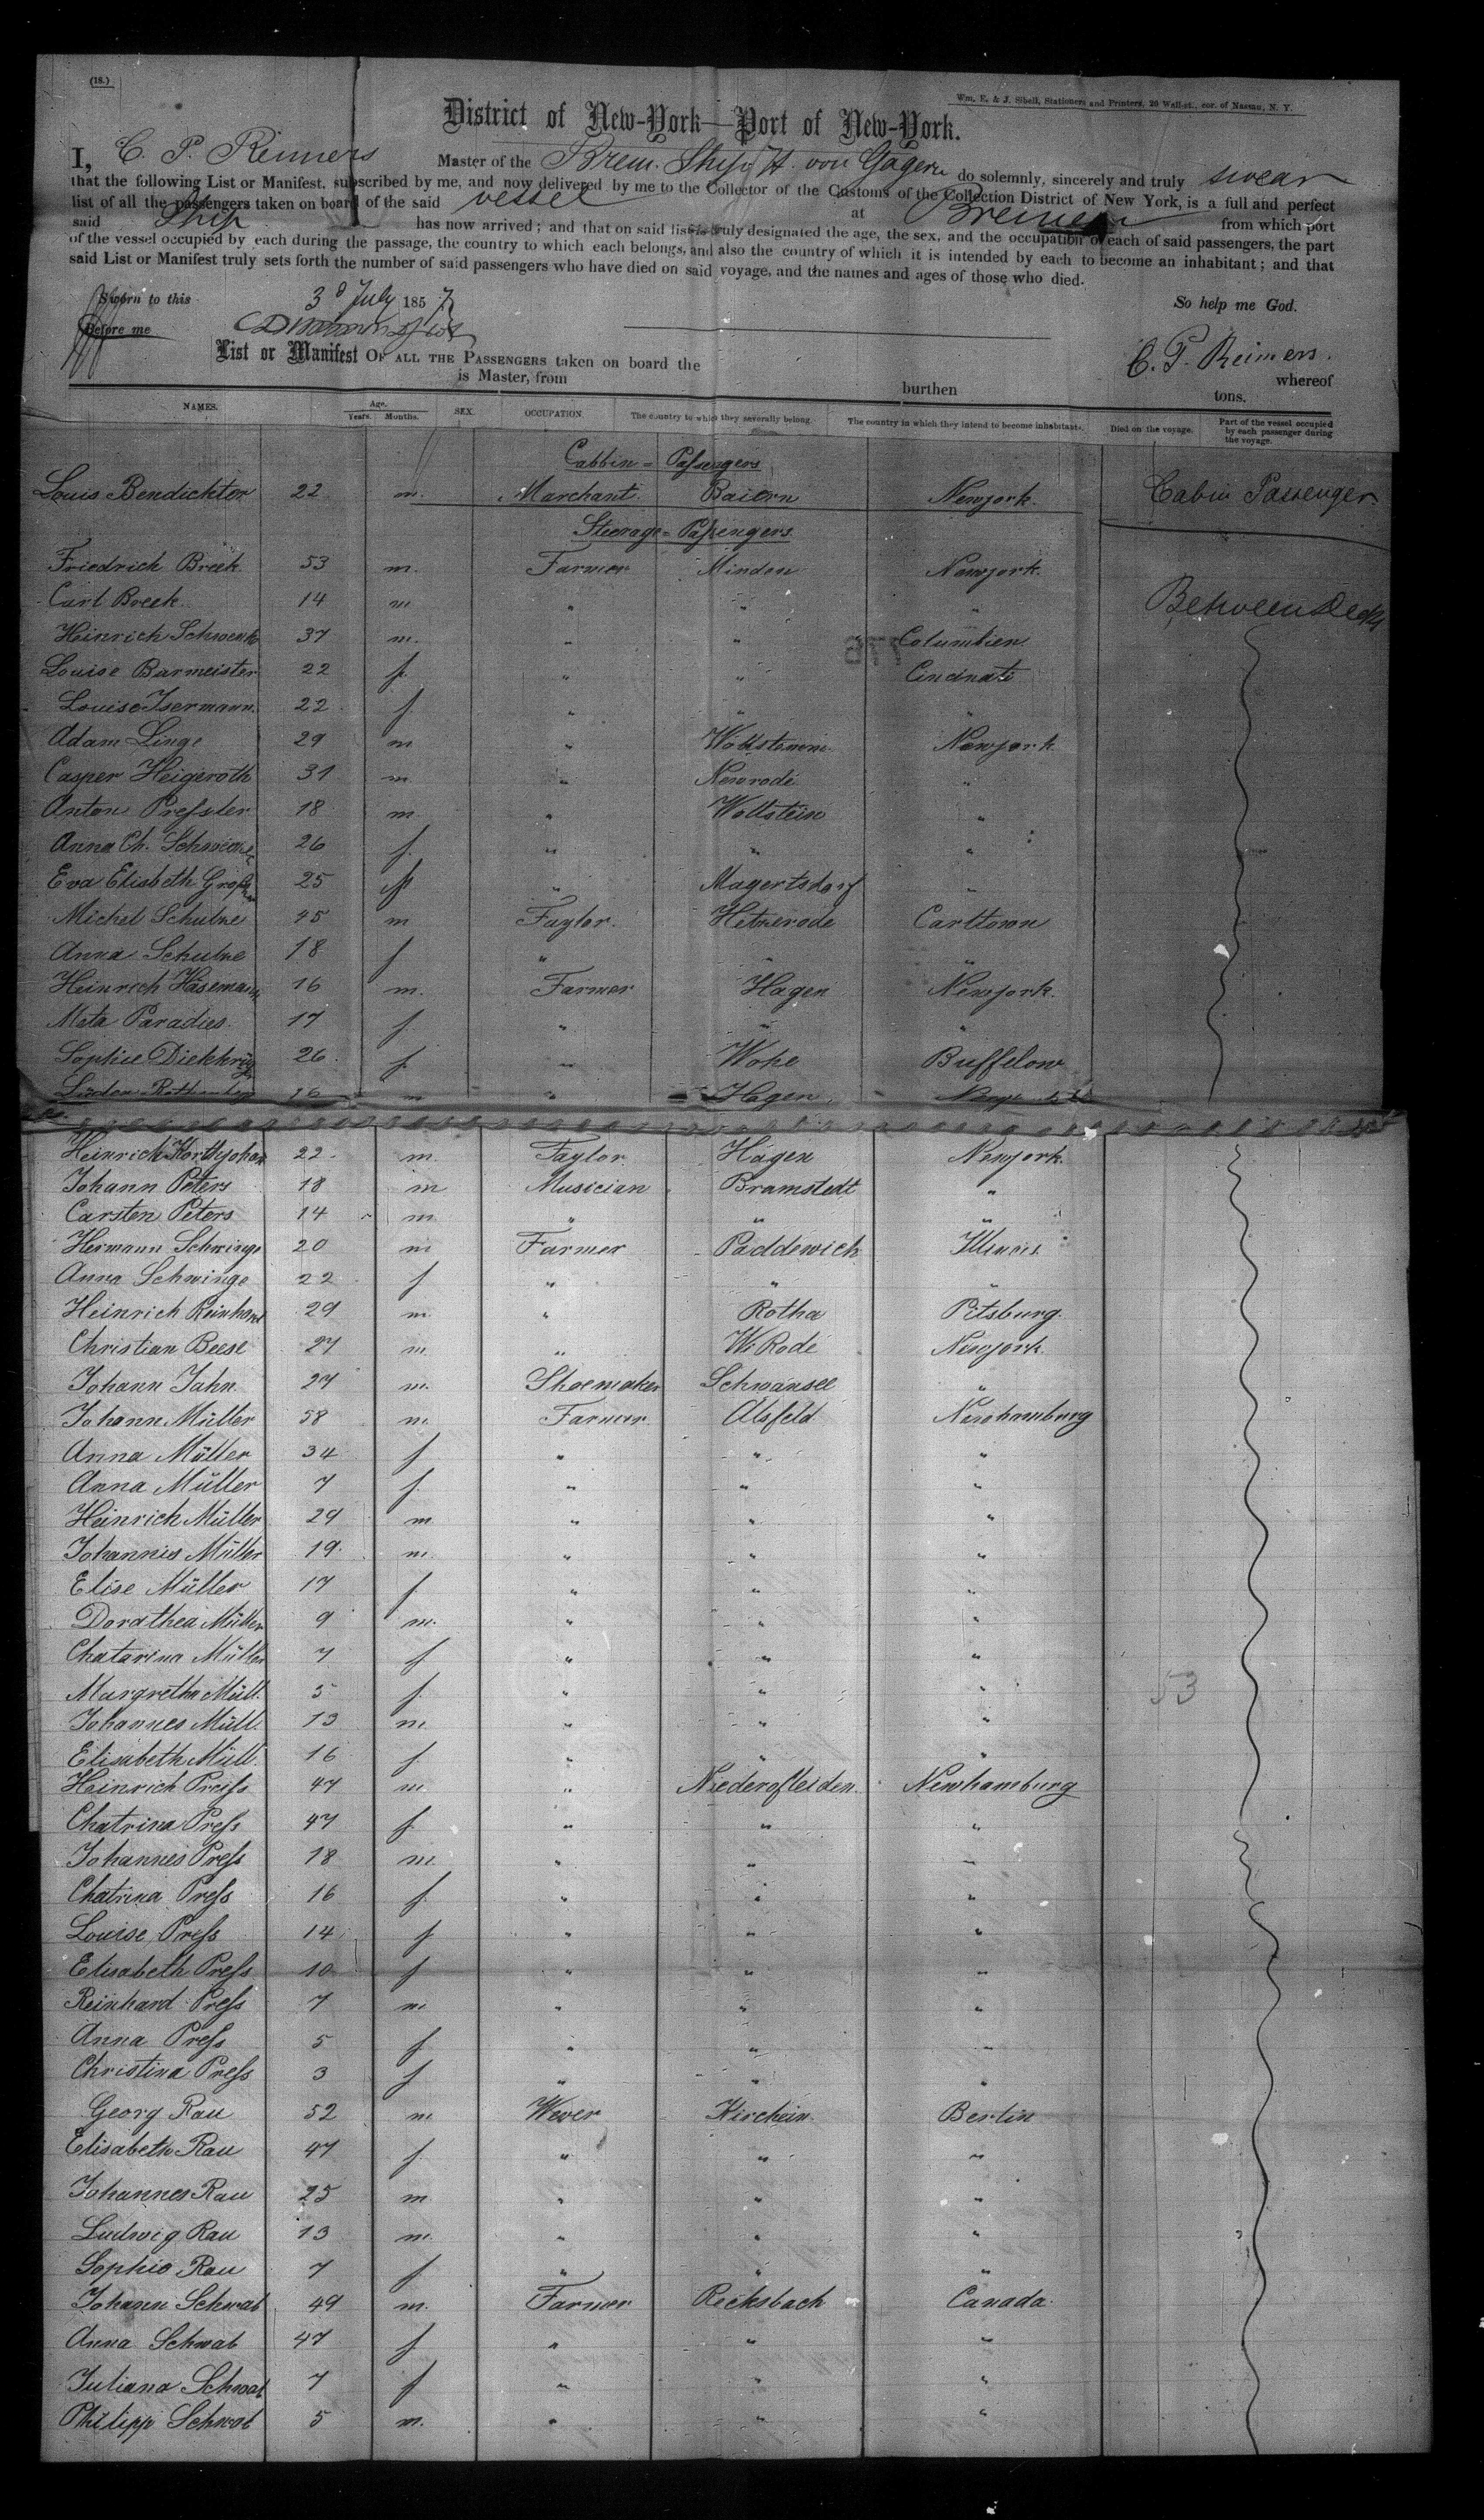 (18.)
Wm. E. & J. Sibell, Stationers and Printers, 20 Wall-st., cor. of Nassau, N. Y.
District of New-York—Port of New-York.
I, C. P. Reimers Master of the Brem. Ship H. von Gagern do solemnly, sincerely and truly swear
that the following List or Manifest, subscribed by me, and now delivered by me to the Collector of the Customs of the Collection District of New York, is a full and perfect
list of all the passengers taken on board of the said vessel at Bremen from which port
said Ship has now arrived; and that on said list is truly designated the age, the sex, and the occupation of each of said passengers, the part
of the vessel occupied by each during the passage, the country to which each belongs, and also the country of which it is intended by each to become an inhabitant; and that
said List or Manifest truly sets forth the number of said passengers who have died on said voyage, and the names and ages of those who died.
Sworn to this 3d July 1857 So help me God.
Before me C. P. Reimers.
List or Manifest OF ALL THE PASSENGERS taken on board the whereof
is Master, from burthen tons.
NAMES. Age. Years. Months. SEX. OCCUPATION. The country to which they severally belong. The country in which they intend to become inhabitants. Died on the voyage. Part of the vessel occupied by each passenger during the voyage.
Cabbin = Passengers
Louis Bendickter 22 m. Marchant Baiern Newjork. Cabin Passenger
Steerage = Passengers
Friedrich Breek 53 m. Farmer Minden Newjork.
Carl Breek 14 m " " " Between Decks
Heinrich Schwenk 37 m. " " Columbien
Louise Barmeister 22 f. " " Cincinati
Louise Isermann 22 f. " " "
Adam Linge 29 m " Newjork
Casper Heigeroth 31 m " Newrode "
Anton Pressler 18 m " Wollstein "
Anna Ch. 26 f. " " "
Eva Elisbeth 25 f " Magertsdorf "
Michel Schulze 45 m Taylor. Hetzerode Carltown
Anna Schulze 18 f " " "
Heinrich Häsemann 16 m. Farmer Hagen Newjork.
Meta Paradies 17 f " " "
Sophie 26 f. " Buffelow
16 m " Hagen
Heinrich Korthjohan 22 m. Taylor Hagen Newjork.
Johann Peters 18 m Musician Bramstedt "
Carsten Peters 14 m " " "
Hermann Schwinge 20 m Farmer Paddewich Illinois
Anna Schwinge 22 f " " "
Heinrich Reinhard 29 m. " Rotha Pitsburg.
Christian Beese 27 m " W. Rode Newjork
Johann Jahn 27 m. Shoemaker Schwansee "
Johann Müller 58 m. Farmer Alsfeld Newhamburg
Anna Müller 34 f " " "
Anna Müller 7 f " " "
Heinrich Müller 29 m " " "
Johannes Müller 19 m. " " "
Elise Müller 17 f " " "
Dorathea Müller 9 m. " " "
Chatarina Müller 7 f " " "
Margretha Müll. 5 f. " " " 53
Johannes Müll. 13 m. " " "
Elisabeth Müll. 16 f " " "
Heinrich Preiss 47 m. " Niederofleiden Newhamburg
Chatrina Press 47 f " " "
Johannes Press 18 m. " " "
Chatrina Press 16 f " " "
Louise Press 14 f " " "
Elisabeth Press 10 f " " "
Reinhard Press 7 m. " " "
Anna Press 5 f " " "
Christina Press 3 f " " "
Georg Rau 52 m. Wever Kirchein Berlin
Elisabeth Rau 47 f " " "
Johannes Rau 25 m " " "
Ludwig Rau 13 m. " " "
Sophie Rau 7 f " " "
Johann Schwab 49 m. Farmer Recksbach Canada.
Anna Schwab 47 f " " "
Juliana Schwab 7 f " " "
Philipp Schwab 5 m. " " "